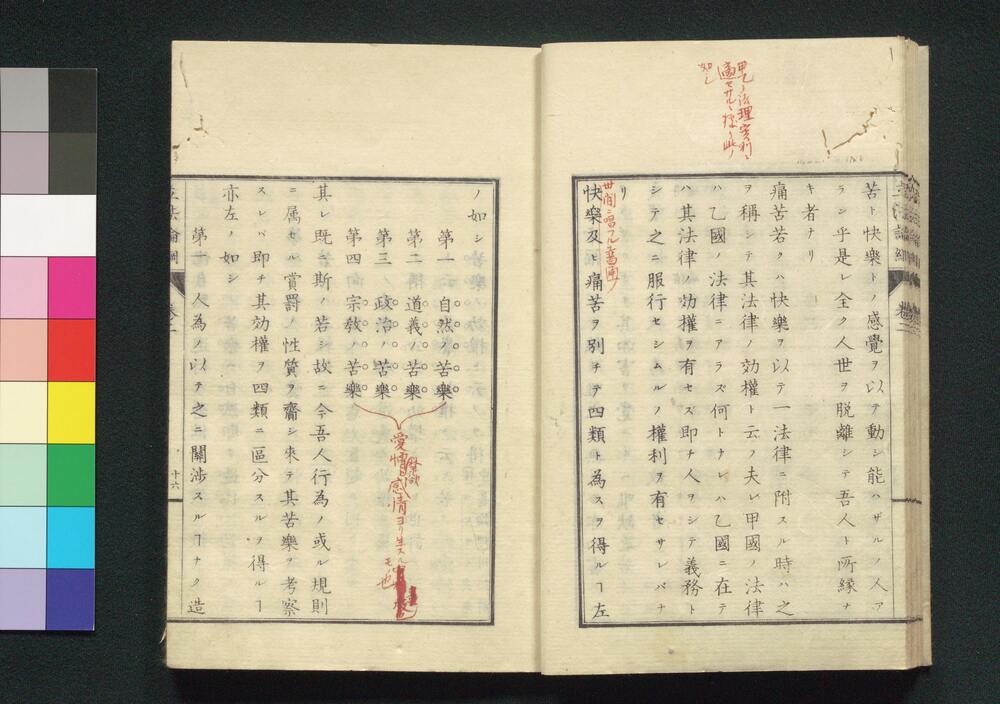 苦ト快樂トノ感覺ヲ以テ動シ能ハザルノ人ア
ラン乎是レ全ク人世ヲ脱離シテ吾人ト所縁ナ
キ者ナリ
痛苦若クハ快樂ヲ以テ一法律ニ附スル時ハ之
ヲ稱シテ其法律ノ効權ト云フ夫レ甲國ノ法律
ハ乙國ノ法律ニアラズ何トナレハ乙國ニ在テ
ハ其法律ノ効權ヲ有セズ即チ人ヲシテ義務ト
シテ之ニ服行セシムルノ權利ヲ有セサレバナ
リ
世間ニ唱フル普通ノ
快樂及ヒ痛苦ヲ別チテ四類ト為スヲ得ルヿ左
ノ如シ
第一 自然ノ苦樂
第二 道義ノ苦樂
第三 政治ノ苦樂
第四 宗教ノ苦樂
愛憎
感情ヨリ生スル
モ也
其レ既ニ斯ノ若シ故ニ今吾人行為ノ或ル規則
ニ属セル賞罰ノ性質ヲ齎シ来テ其苦樂ヲ考察
スレバ即チ其効權ヲ四類ニ區分スルヲ得ルヿ
亦左ノ如シ
第一 人為ヲ以テ之ニ關渉スルヿナク造
十六